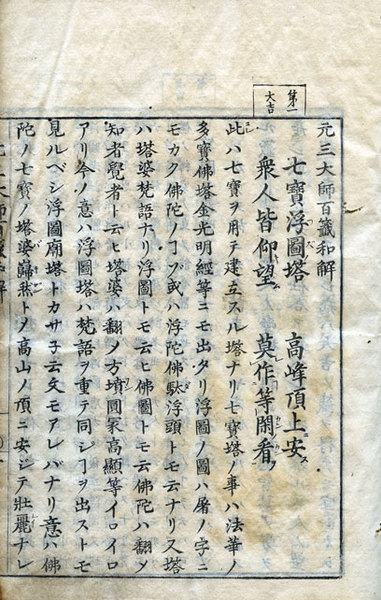 第一
大吉
元三大師百籤和解
七寶浮圖塔 高峰頂上安
衆人皆仰望 莫作等閑看
此ハ七寶ヲ用テ建立スル塔ナリ七寶塔ノ事ハ法華ノ
多寶佛塔金光明經等ニモ出タリ浮圖ノ圖ハ屠ノ字ニ
モカク佛陀ノヿゾ或ハ浮陀佛馱浮頭トモ云ナリ又塔
ハ塔婆梵語ナリ浮圖トモ云ヒ佛圖トモ云佛陀ハ翻メ
知者覺者ト云ヒ塔婆ハ翻ノ方墳圓冢高顯等イロイロ
アリ今ノ意ハ浮圖塔ハ梵語ヲ重テ同シヿヲ出ストモ
見ルベシ浮圖廟塔トカサ子云文モアレバナリ意ハ佛
陀ノ七寶ノ塔婆歸然トメ高山ノ頂ニ安ジテ壯麗ナレ